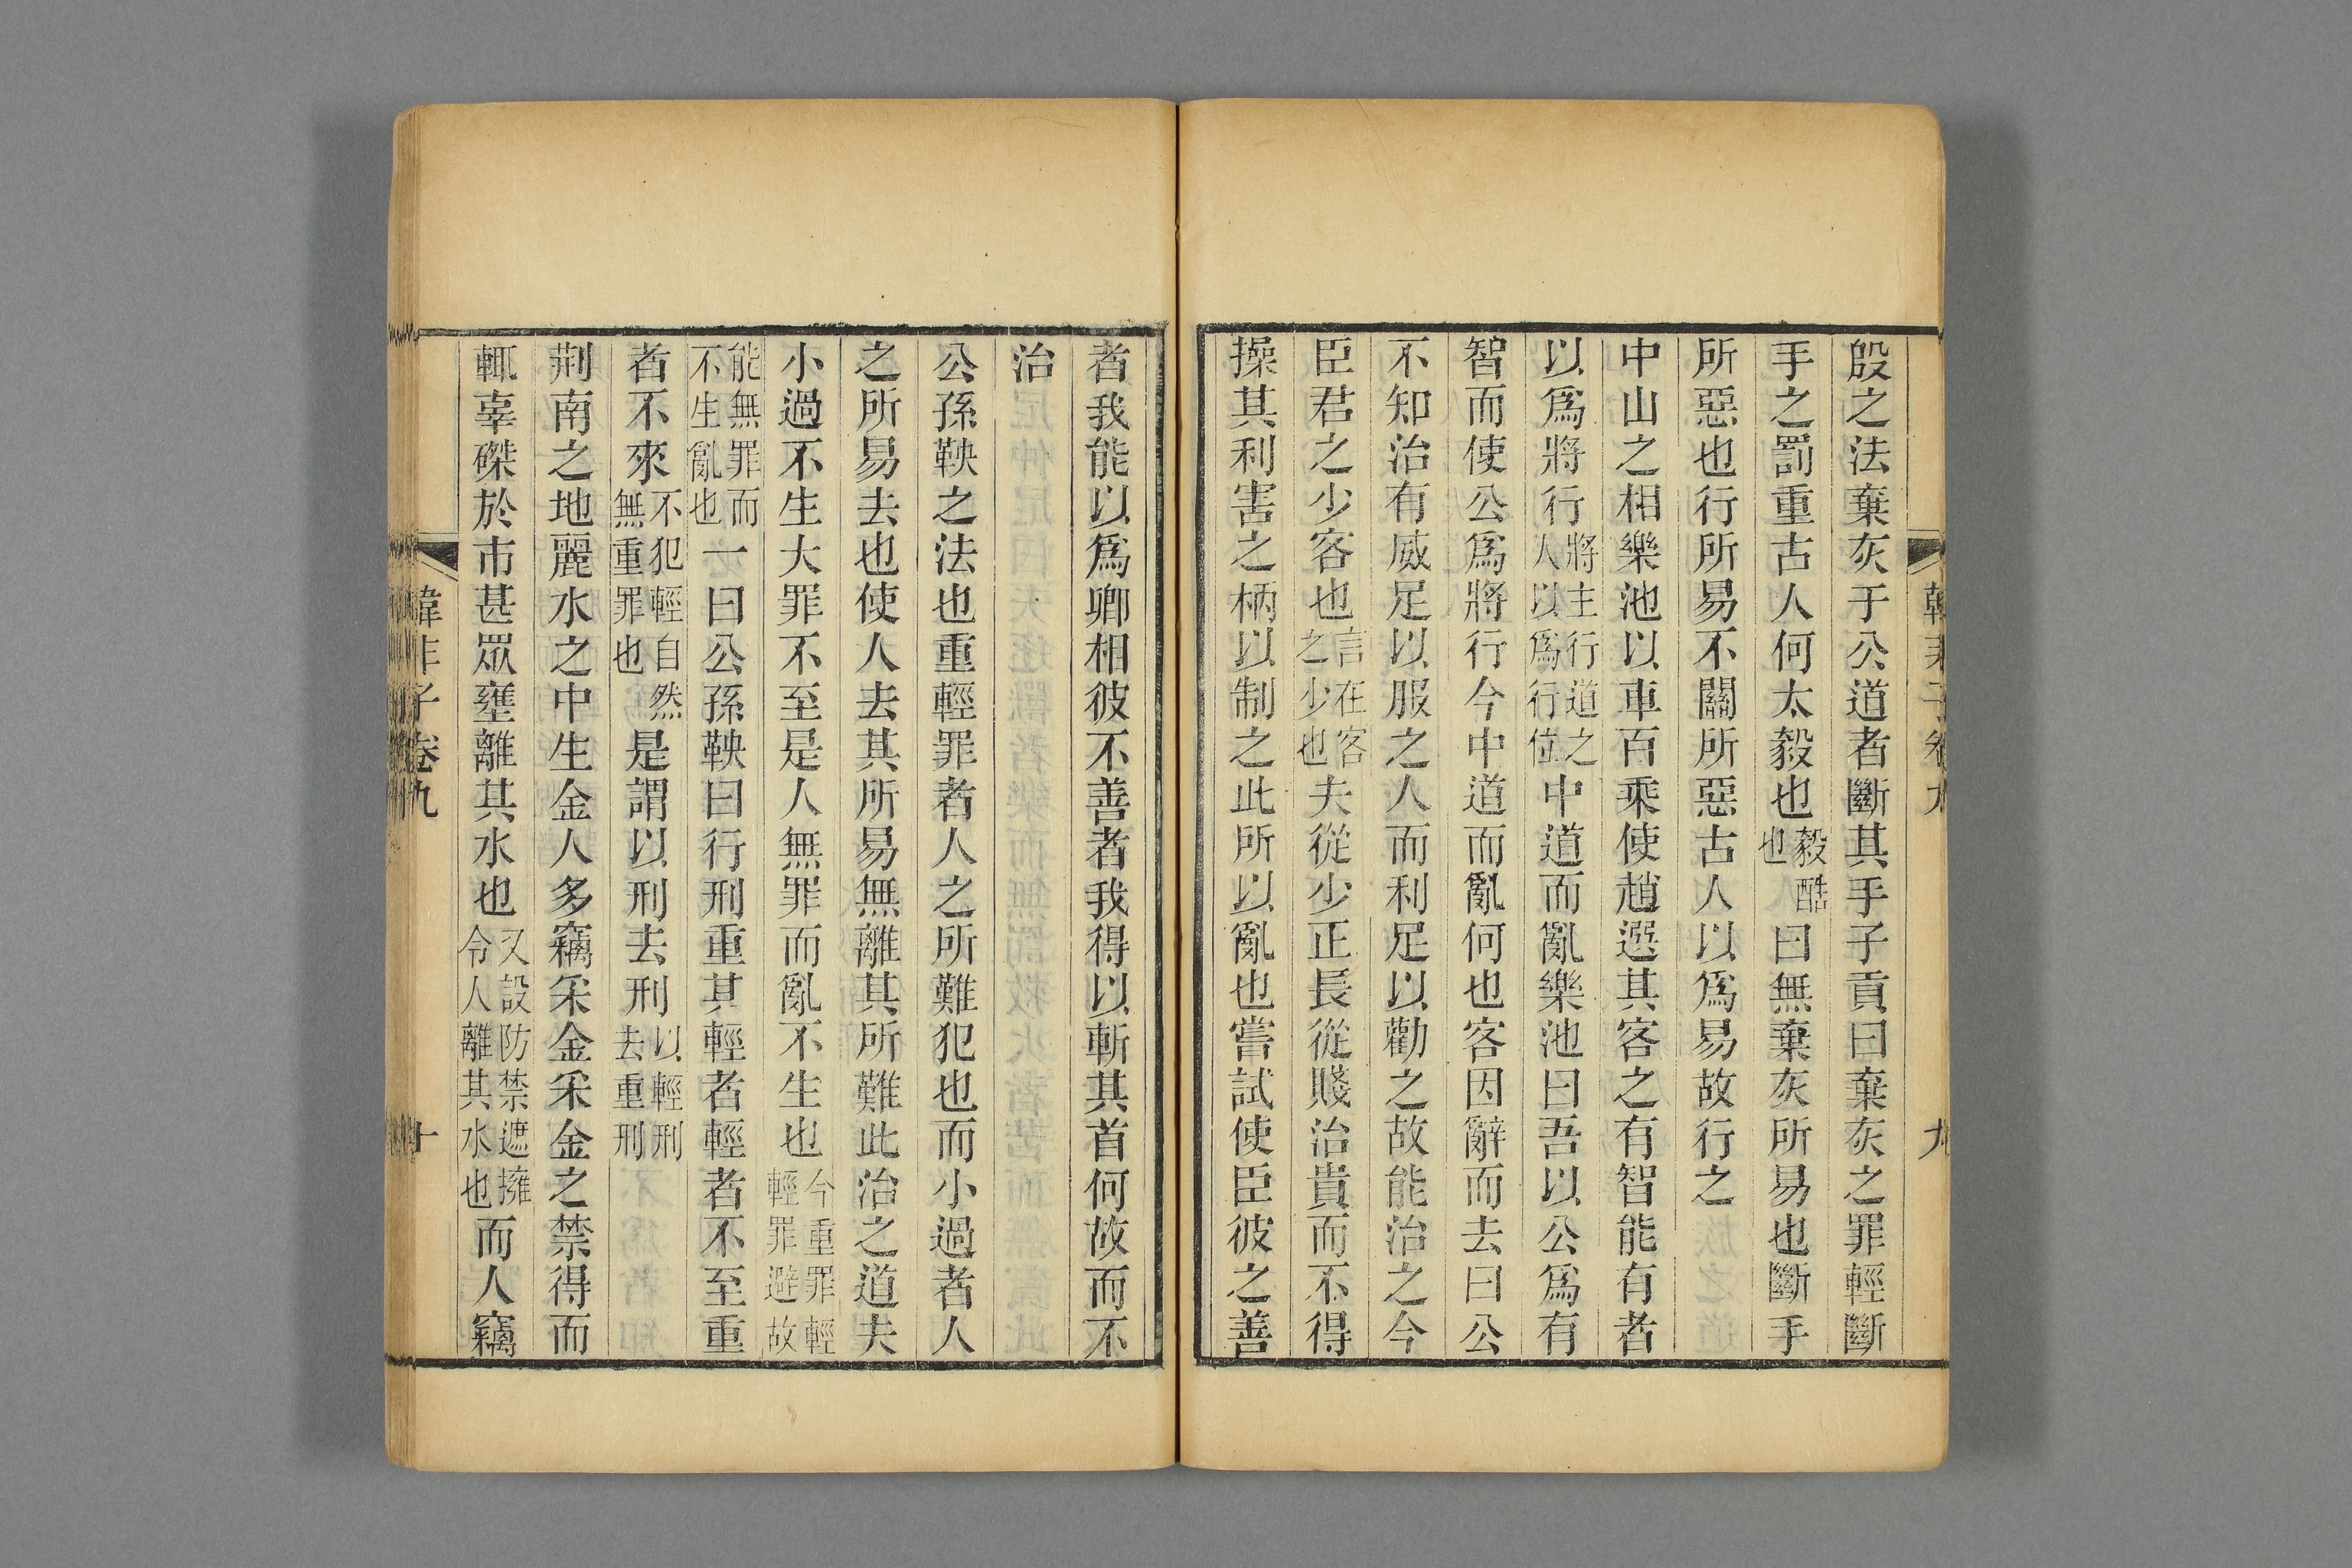 韓非子卷九
九
殷之法棄灰于公道者斷其手子貢曰棄灰之罪輕斷
手之罰重古人何太毅也毅酷也曰無棄灰所易也斷手
所惡也行所易不關所惡古人以爲易故行之
中山之相樂池以車百乘使趙選其客之有智能有者
以爲將行將主行道之人以爲行位中道而亂樂池曰吾以公爲有
智而使公爲將行今中道而亂何也客因辭而去曰公
不知治有威足以服之人而利足以勸之故能治之今
臣君之少客也言在客之少也夫從少正長從賤治貴而不得
操其利害之柄以制之此所以亂也嘗試使臣彼之善
者我能以爲卿相彼不善者我得以斬其首何故而不
治
公孫鞅之法也重輕罪者人之所難犯也而小過者人
之所易去也使人去其所易無離其所難此治之道夫
小過不生大罪不至是人無罪而亂不生也今重罪輕輕罪避故
能無罪而不生亂也一曰公孫鞅曰行刑重其輕者輕者不至重
者不來不犯輕自然無重罪也是謂以刑去刑以輕刑去重刑
荆南之地麗水之中生金人多竊采金采金之禁得而
輒辜磔於市甚眾壅離其水也又設防禁遮擁令人離其水也而人竊
韓非子卷九
十